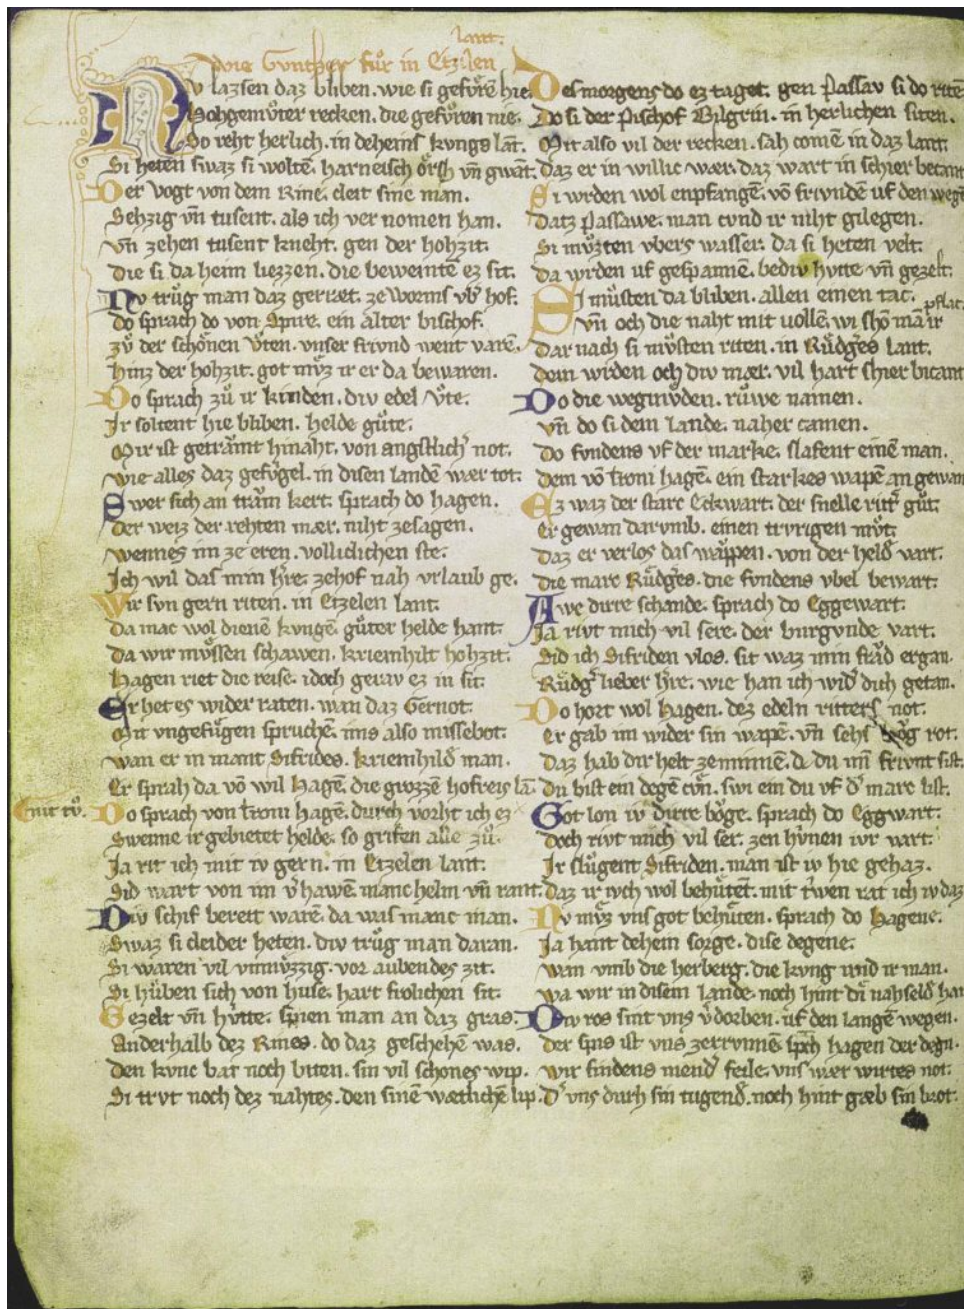 lant.
wie Gunther fuͦr in Etzelen
Nv lazsen daz bliben. wie si gefuͤrē hie.
Hohgemuͦter recken. die gefuͦren nie.
So reht herlich. in deheins kvngs lāt.
Si heten swaz si woltē. harneisch oͤrsh vn̄ gwāt.
Der vogt von dem Rine. cleit sine man.
Sehzig vn̄ tusent. als ich ver nomen han.
vn̄ zehen tusent kneht. gen der hohzit.
Die si da heim liezzen. die beweintē ez sit.
Nv truͦg man daz geriæt. ze Worms vb͛ hof.
do sprach do von Spire. ein alter bischof.
zuͦ der schoͤnen vͦten. vnser frivnd went varē.
hinz der hohzit. got muͤz ir er da bewaren.
Do sprach zuͦ ir kinden. div edel vͦte.
Ir soltent hie bliben. helde guͦte.
Mir ist getraͮmt hinaht. von angstlich͛ not.
wie alles daz gefuͤgel. in disen landē wær tot.
Swer sich an traͮm kert. sprach do hagen.
der weiz der rehten mær. niht ze sagen.
wennes im ze eren. volliclichen ste.
Ich wil das min h͛re. ze hof nah vrlaub ge.
Wir svn gern riten. in Etzelen lant.
Da mac wol dienē kvnge. guͦter helde hant.
Da wir muͦssen schawen. kriemhilt hohzit.
Hagen riet die reise. idoch gerav ez in sit.
Er het es wider raten. wan daz Gernot.
Mit vngefuͤgen spruchē. ims also missebot.
wan er in mant Sifrides. kriemhild͛ man.
Er sprah da vō wil Hagē. die grozzē hofreis lā.
mit iv.
Do sprach von troni hagē. durch vorht ich ez
Swenne ir gebietet helde. so grifen alle zuͦ.
Ja rit ich mit iv gern. in Etzelen lant.
Sid wart von im v͛hawē. manc helm vn̄ rant.
Div schif bereit warē. da was manc man.
Swaz si cleider heten. div truͦg man daran.
Si waren vil vnmvͤzzig. vor aubendes zit.
Si huͦben sich von huse. hart frolichen sit.
Gezelt vn̄ huͤtte. spien man an daz gras.
Anderhalb dez Rines. do daz geschehē was.
Den kvnc bat noch biten. sin vil schones wip.
Si trvt noch dez nahtes. den sinē wætlichē lip.
Des morgens do ez taget. gen Passav si do ritē
Do si der Pischof Bilgrin. in herlichen siten.
Mit also vil der recken. sah comē in daz lant.
daz er in willic wær. daz wart in schier becant
Si wrden wol enpfangē. vō frivndē uf den wegē
datz Passawe. man cvnd ir niht gilegen.
Si muͤzten vbers wasser. da si heten velt.
Da wrden uf gespannē. bediv hvtte vn̄ gezelt.
Si muͤsten da bliben. allen einen tac.
pflac.
vn̄ och die naht mit vollē. wi shō mā ir
Dar nach si muͤsten riten. in Ruͤdg͛es lant.
Dem wrden och div mær. vil hart shier bicant
Do die wegmuͤden. ruͦwe namen.
vn̄ do si dem lande. naher camen.
Do fvndens vf der marke. slafent einē man.
dem vō troni hagē. ein starkes wapē an gewan
Ez waz der starc Eckwart. der snelle ritt͛ guͦt.
Er gewan darvmb. einen trvrigen muͦt.
Daz er verlos das waͤppen. von der held͛ vart.
die marc Ruͤdg͛es. die fvndens vbel bewart.
Awe dirre schande. sprach do Eggewart.
Ja rivt mich vil sere. der burgvnde vart.
Sid ich Sifriden vlos. sit waz min fraͮd ergan.
Ruͤdg͛ lieber h͛re. wie han ich wid͛ dich getan.
Do hort wol Hagen. dez edeln ritters not.
er gab im wider sin wapē. vn̄ sehs boͮg rot.
daz hab dir helt ze minnē. d. du min frivnt sist.
dn bist ein degē cuͤn. swi ein du vf d͛ marc list.
Got lon iv dirre boͮge. sprach do Eggwart.
doch rivt mich vil ser. zen hvnen ivr vart.
Ir sluͦgent Sifriden. man ist iv hie gehaz.
daz ir ivch wol behuͤtet. mit trwen rat ich iv daz
Nv muͤz vns got behuͤten. sprach do Hagene.
Ja hant dehein sorge. dise degene.
wan vmb die herberg. die kvng vnd ir man.
wa wir in disem lande. noch hint di nahseld͛ han
Div ros sint vns v͛dorben. uf den langē wegen.
der spis ist vns zerrvnnē. spch hagen der degn.
wir findens niend͛ feile. vns wær wirtes not.
D͛ vns durh sin tugend͛. noch hint gæb sin brot.